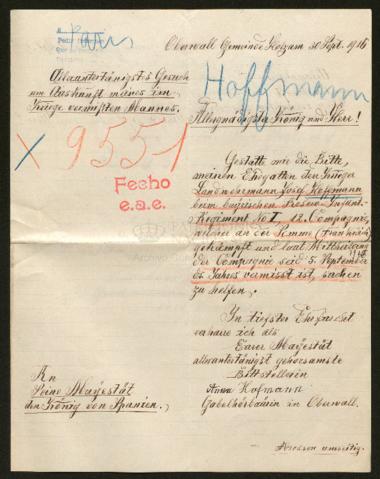 Oberwall Gemeinde Holzham 30 Sept. 1916
Alleruntertänigstes Gesuch
um Auskunft meines im
Kriege vermißten Mannes.
Hoffmann
Allergnädigster König und Herr!
X 9551
Fecho
e.a.e.
Gestatte mir die Bitte,
meinen Ehegatten den Krieger
Landwehrmann Josef Hofmann
beim bayrischen Reserve Infant.
Regiment No I 12. Compagnie,
welcher an der Somme (Frankreich)
gekämpft und laut Mitteilung
der Compagnie seid 5. September
ds Jahres vermisst ist, suchen
zu helfen.
In tiefster Ehrfurcht
verharre ich als
Eurer Majestät
alleruntertänigst gehorsamste
Bittstellerin
Anna Hofmann
in Oberwall.
An
Seine Majestät
den König von Spanien.
Adresse umseitig.